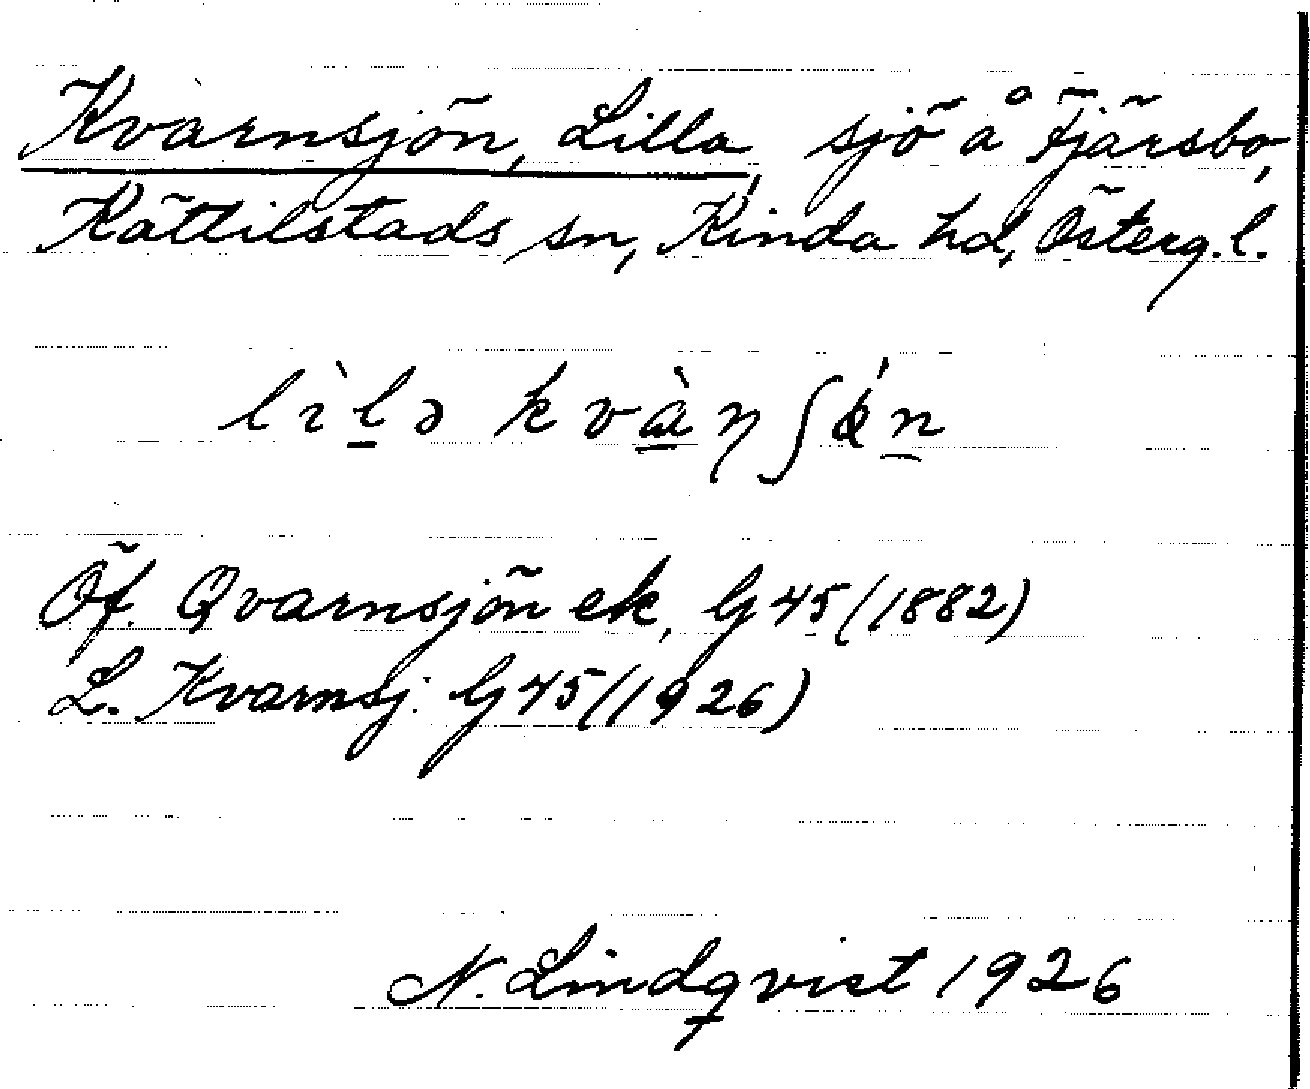 Kvarnsjön, Lilla, sjö å Fjärsbo,
Kättilstads sn, Kinda hd, Österg.l.
Öf. Qvarnsjön ek, G 45 (1882)
L. Kvarnsj. G 45 (1926)
N. Lindqvist 1926